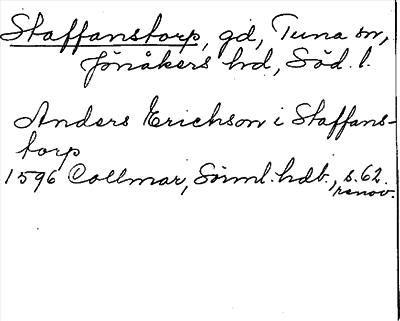 Staffanstorp, gd, Tuna sn,
Jönåkers hd, Söd. l.
Anders Erichson i Staffans-
torp
1596 Collmar, Sörml. hdb., s. 62.
renov.